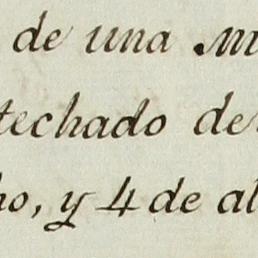 de una M
techado de
ho, y 4 de al